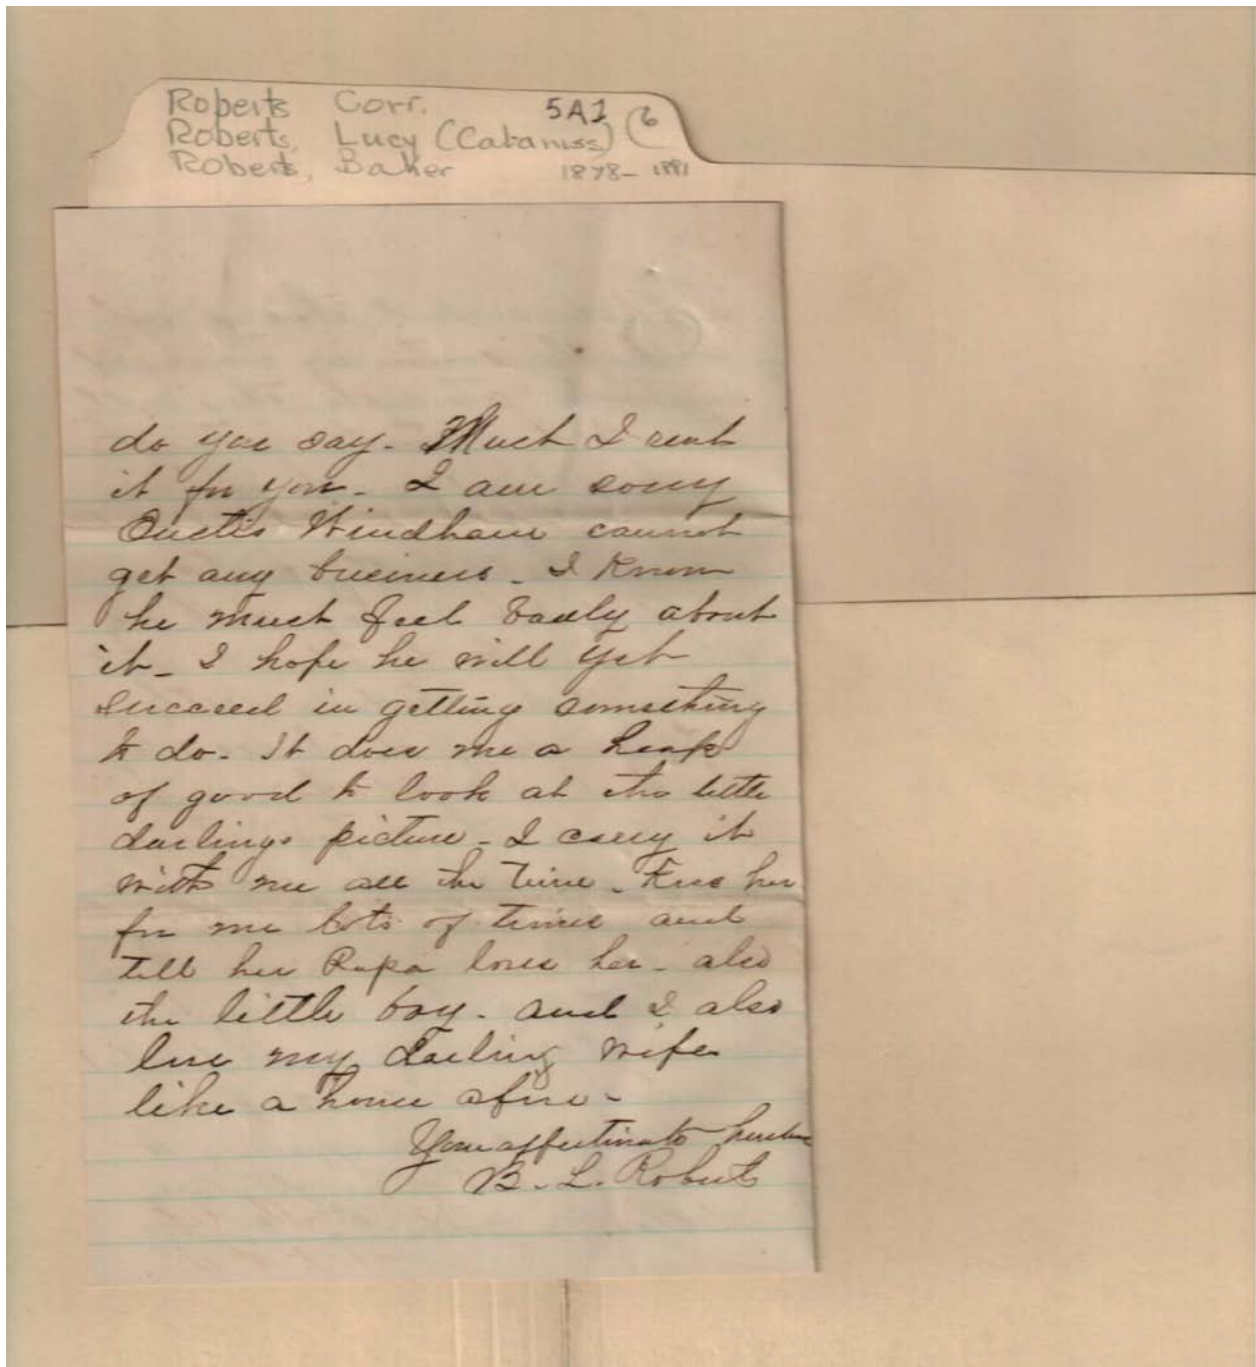 Roberts Corr. 5A1 (6
Roberts, Lucy (Cabaniss)
Roberts, Baker 1878-1881
do you say. Must I rent
it for you. I am sorry
Windham cannot
get any business. I know
he must feel badly about
it. I hope he will yet
succeed in getting something
to do. It does me a heap
of good to look at the little
darlings picture. I carry it
with me all the time. Kiss her
for me lots of times and
tell her Papa loves her. also
the little boy. and I also
love my darling wife
like a house afire.
Your affectinate husban
B. L. Roberts